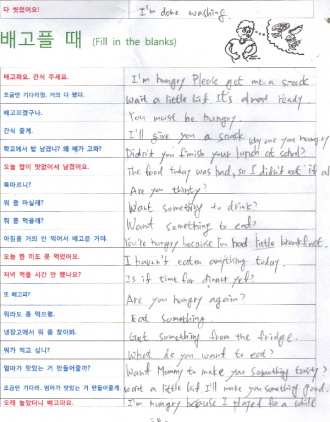 다 씻었어요!
I'm done washing.
배고플 때 (Fill in the blanks)
배고파요. 간식 주세요.
I'm hungry Please get me a snack
조금만 기다리렴. 거의 다 됐다.
Wait a little bit. It's almost ready.
배고프겠구나.
You must be hungry.
간식 줄게.
I'll give you a snack
학교에서 밥 남겼니? 왜 배가 고파?
why are you hungry
Didn't you finish your lunch at school?
오늘 밥이 맛없어서 남겼어요.
The food today was bad, so I didn't eat it al
목마르니?
Are you thirsty?
뭐 좀 마실래?
Want something to drink?
뭐 좀 먹을래?
Want something to eat?
아침을 거의 안 먹어서 배고픈 거야.
You're hungry because I'm had little breakfast.
오늘 한 끼도 못 먹었어요.
I haven't eaten anything today.
저녁 먹을 시간 안 됐나요?
Is it time for dinner yet?
또 배고파?
Are you hungry again?
뭐라도 좀 먹으렴.
Eat something.
냉장고에서 뭐 좀 찾아봐.
Get something from the fridge.
뭐가 먹고 싶니?
What do you want to eat?
엄마가 맛있는 거 만들어줄까?
Want Mommy to make you something tasty?
조금만 기다려. 엄마가 맛있는 거 만들어줄게.
a little. I'll make you something good.
오래 놀았더니 배고파요.
I'm hungry because I played for a while